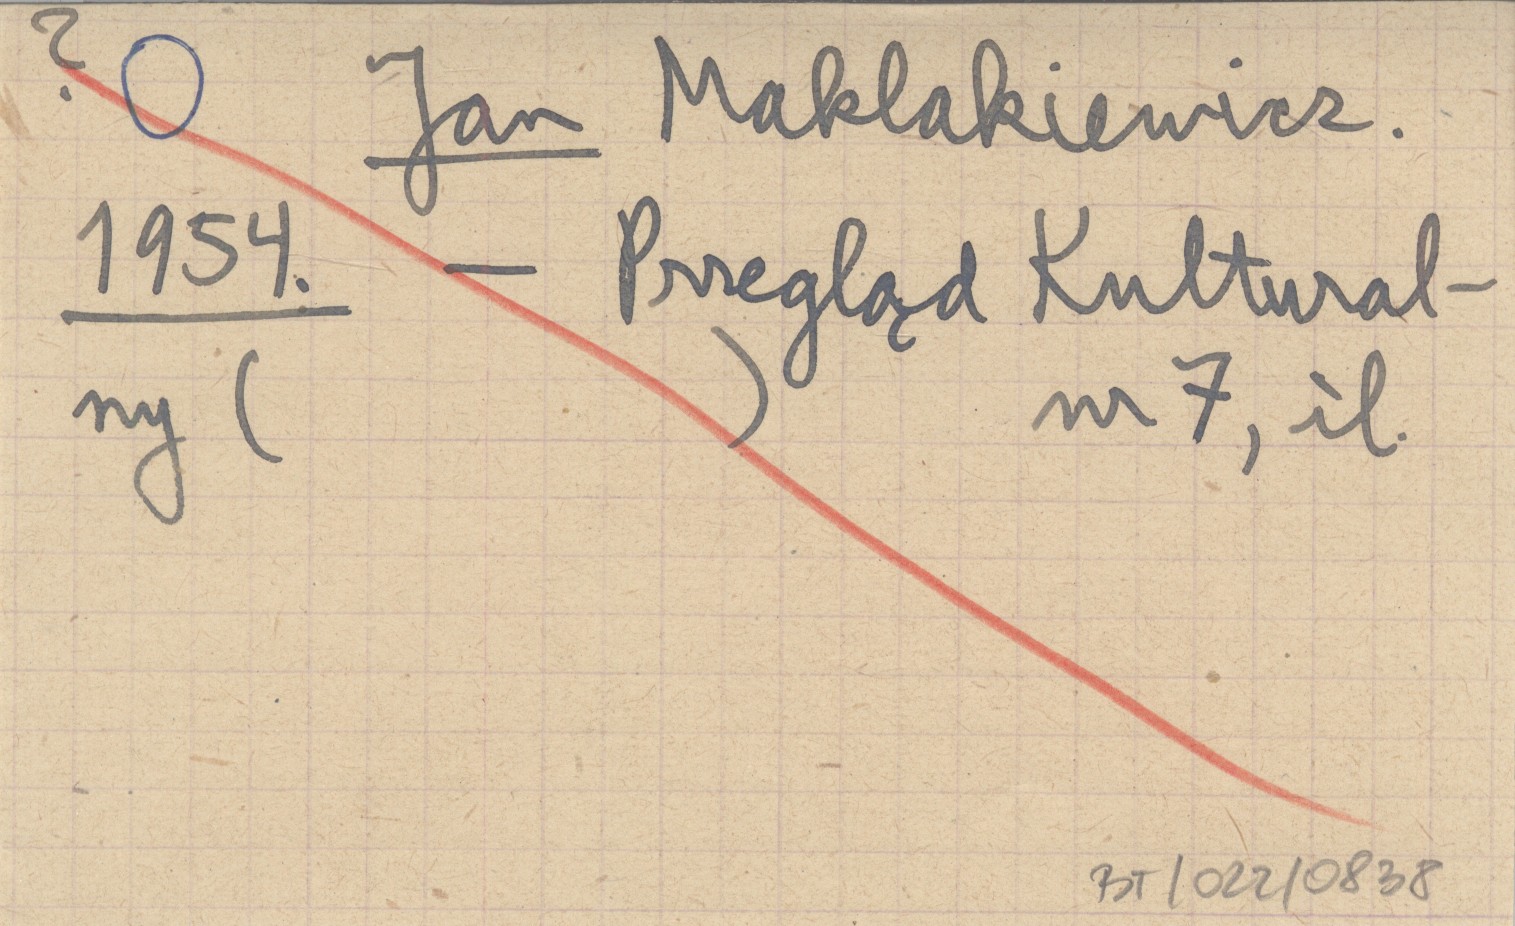 ? O Jan Maklakiewicz.
1954. — Przegląd Kultural-
ny ( ) nr 7, il.
BT/022/0838